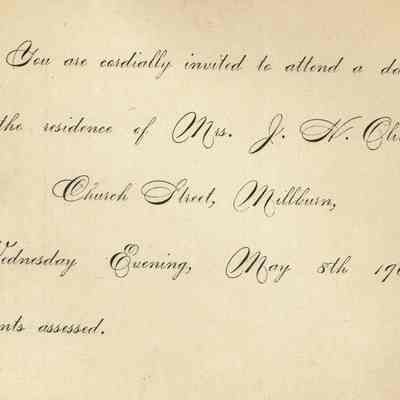 You are cordially invited to attend a da
the residence of Mrs. J. N. Ch
Church Street, Millburn,
Wednesday Evening, May 8th 190
nts assessed.